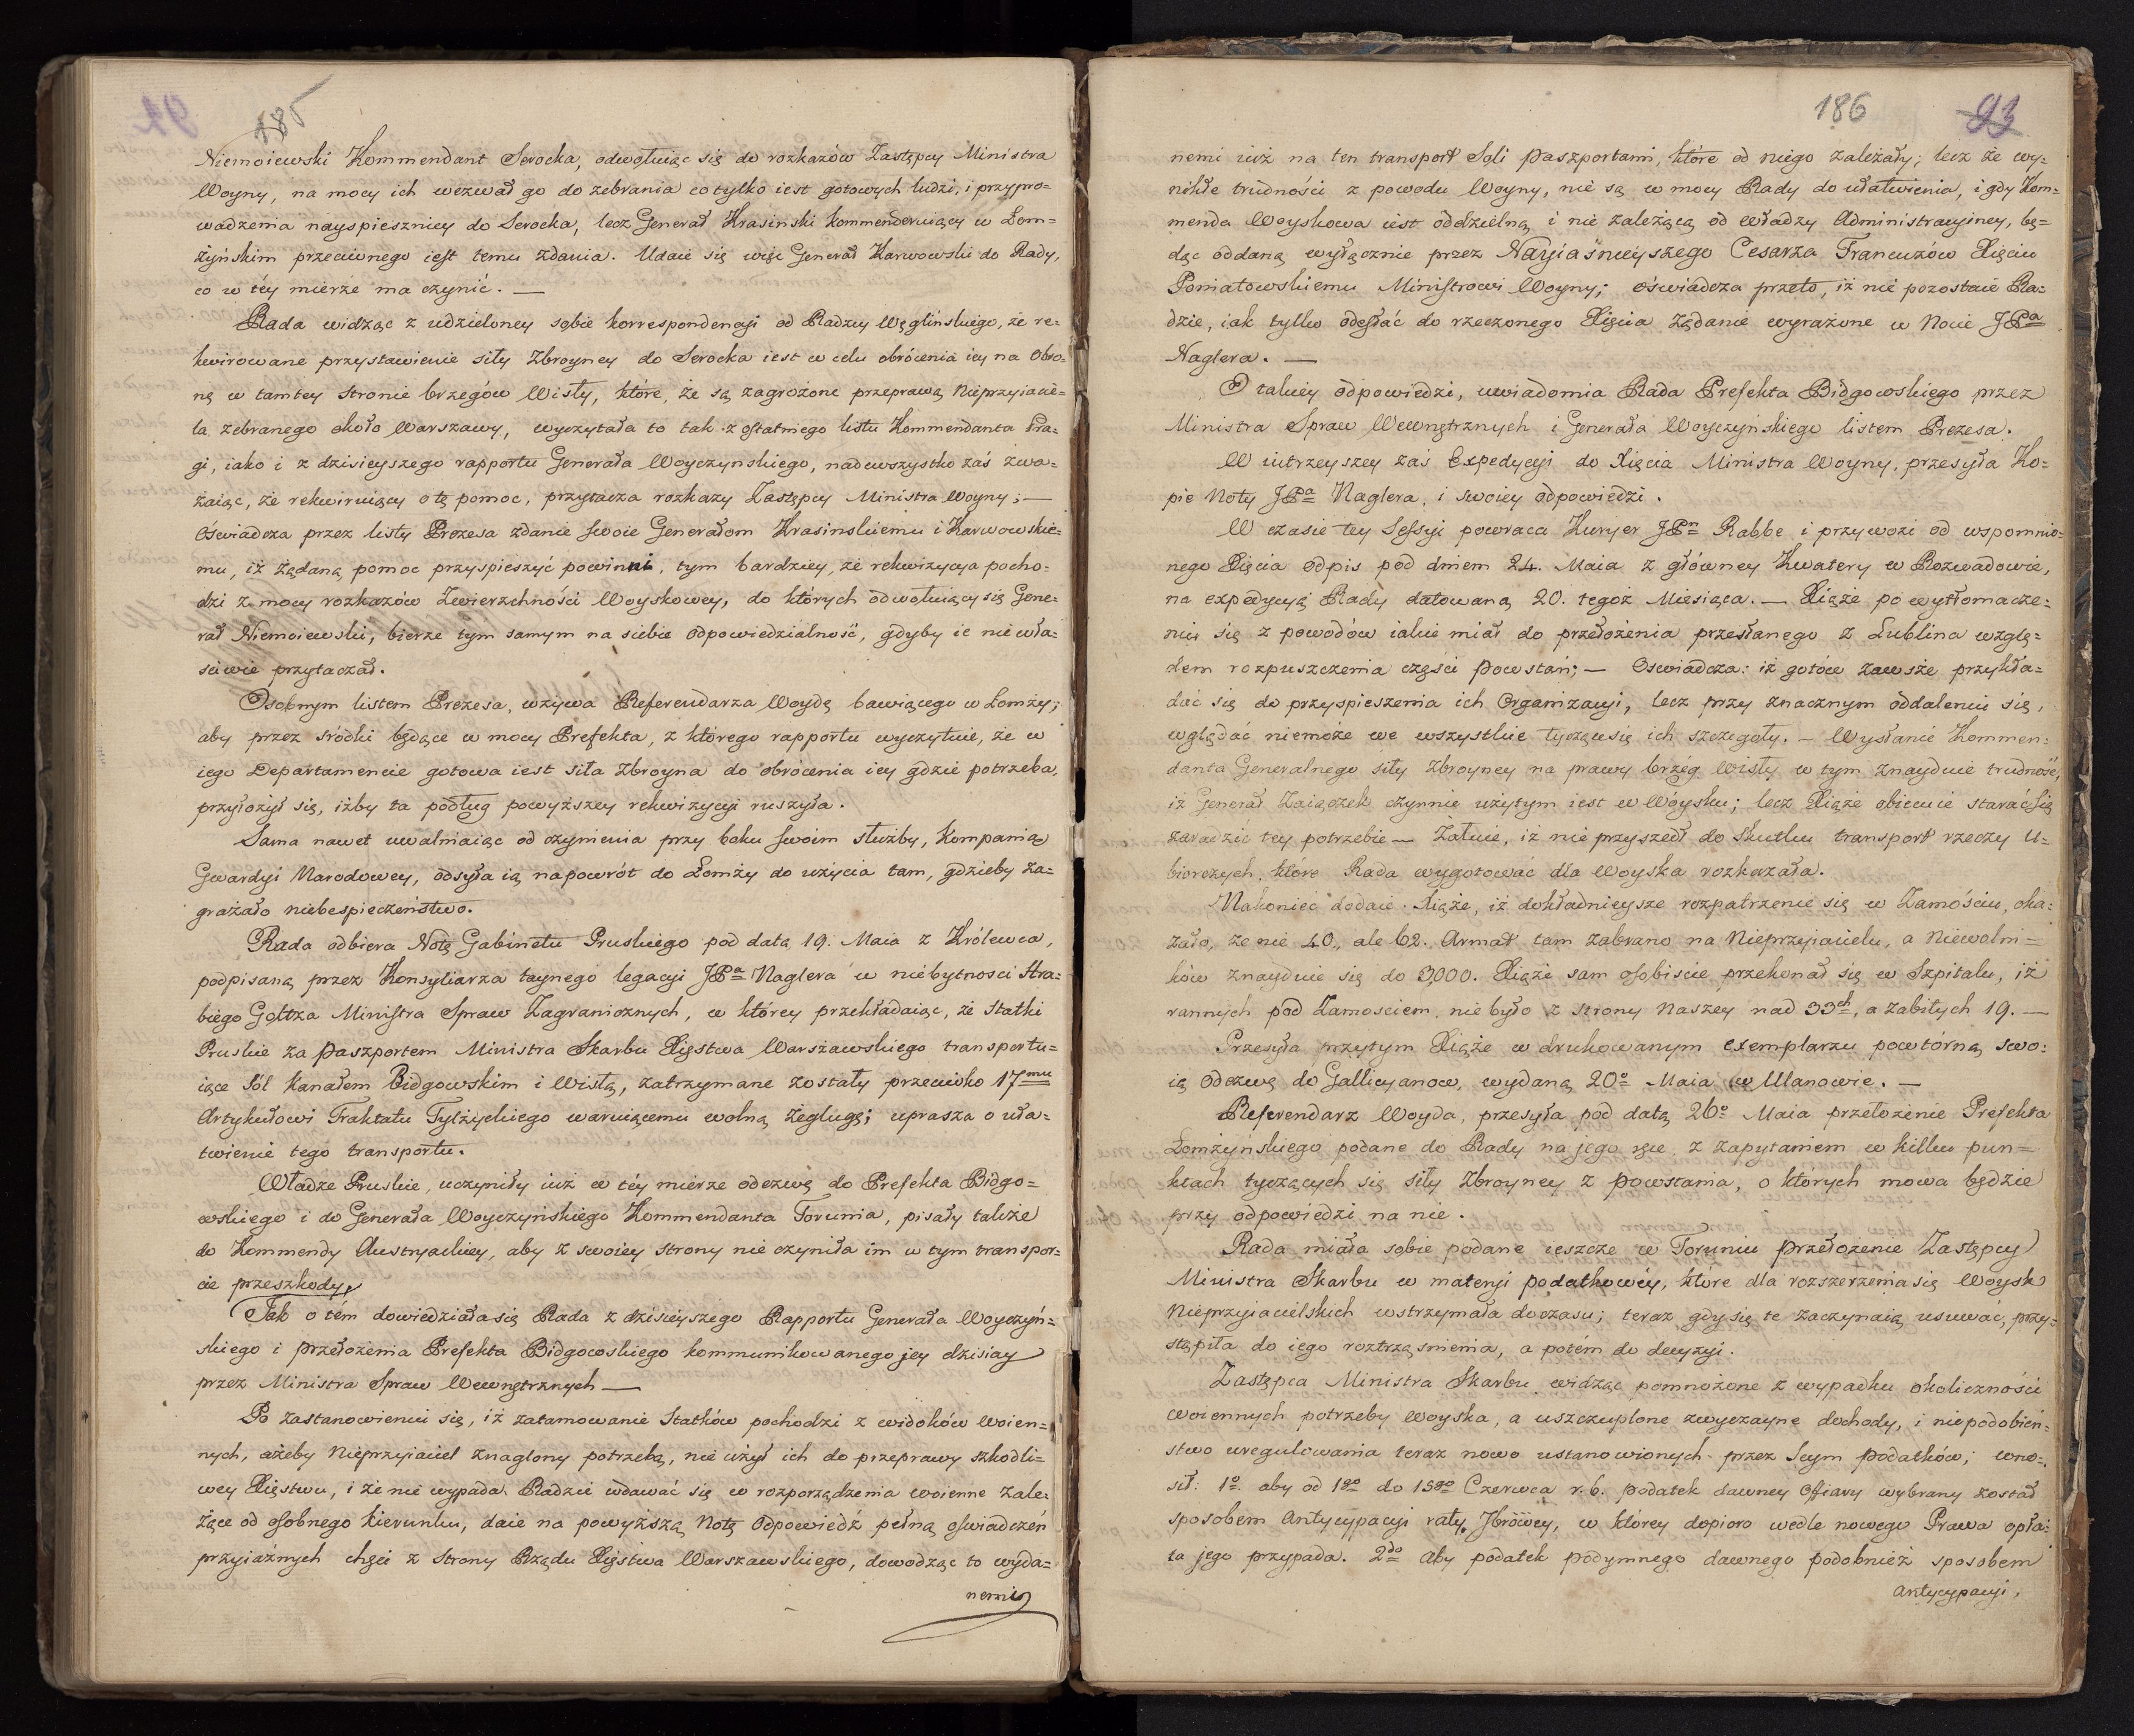 185
Niemoiewski Kommendant Serocka, odwołuiąc się do rozkazów Zastępcy Ministra
Woyny, na mocy ich wezwał go do zebrania co tylko iest gotowych ludzi, i przypro=
wadzenia nayspieszniey do Serocka, lecz Generał Krasinski kommenderuiący w Łom=
żyńskim przeciwnego iest temu zdania. Udaie się więc Generał Karwowski do Rady,
co w téy mierze ma czynić. —
Rada widząc z udzieloney sobie korrespondencyi od Radzcy Węglińskiego, że re=
kwirowane przystawienie siły zbroyney do Serocka iest w celu obrócenia iey na obro=
nę w tamtey stronie brzegów Wisły, które, że są zagrożone przeprawą Nieprzyiacie=
la zebranego około Warszawy, wyczytała to tak z ostatniego listu Kommendanta Pra=
gi, iako i z dzisieyszego rapportu Generała Woyczynskiego, nadewszystko zaś zwa=
żaiąc, że rekwiruiący o tę pomoc, przytacza rozkazy Zastępcy Ministra Woyny; —
Oświadcza przez listy Prezesa zdanie swoie Generałom Krasinskiemu i Karwowskie=
mu, iż żądaną pomoc przyspieszyć powinni, tym bardziey, że rekwizycya pocho=
dzi z mocy rozkazów Zwierzchności Woyskowey, do których odwołuiący się Gene=
rał Niemoiewski, bierze tym samym na siebie odpowiedzialność, gdyby ie niewła=
sciwie przytaczał.
Osobnym listem Prezesa, wzywa Referendarza Woydę bawiącego w Łomży;
aby przez śródki będące w mocy Prefekta, z którego rapportu wyczytuie, że w
iego Departamencie gotowa iest siła zbroyna do obrócenia iey gdzie potrzeba,
przyłożył się, iżby ta podług powyższey rekwizycyi ruszyła.
Sama nawet uwalniaiąc od czynienia przy boku swoim służby, Kompanią
Gwardyi Narodowey, odsyła ią napowrót do Łomży do użycia tam, gdzieby za=
grażało niebespieczeństwo.
Rada odbiera Notę Gabinetu Pruskiego pod datą 19. Maia z Królewca,
podpisaną przez Konsyliarza taynego legacyi JPa Naglera w niebytnosci Hra=
biego Goltza Ministra Spraw Zagranicznych, w którey przekładaiąc, że Statki
Pruskie za paszportem Ministra Skarbu Xięstwa Warszawskiego transportu=
iące Sól kanałem Bidgowskim i Wisłą, zatrzymane zostały przeciwko 17mu
Artykułowi Traktatu Tylżyckiego waruiącemu wolną żeglugę; uprasza o uła=
twienie tego transportu.
Władze Pruskie, uczyniły iuż w téy mierze odezwę do Prefekta Bidgo=
wskiego i do Generała Woyczyńskiego Kommendanta Torunia, pisały także
do Kommendy Austryackiey, aby z swoiey strony nie czyniła im w tym transpor=
cie przeszkody.
Tak o tém dowiedziała się Rada z dzisieyszego Rapportu Generała Woyczyń=
skiego i przełożenia Prefekta Bidgowskiego kommunikowanego jey dzisiay
przez Ministra Spraw Wewnętrznych —
Po zastanowieniu się, iż zatamowanie Statków pochodzi z widoków woien=
nych, ażeby Nieprzyiaciel znaglony potrzebą, nie użył ich do przeprawy szkodli=
wey Xięstwu, i że nie wypada Radzie wdawać się w rozporządzenia woienne zale=
żące od osobnego kierunku, daie na powyższą Notę Odpowiedź pełną oświadczeń
przyiaźnych chęci z strony Rządu Xięstwa Warszawskiego, dowodząc to wyda=
nemi
186 93
nemi iuż na ten transport Soli paszportami, które od niego zależały; lecz że wy=
nikłe trudności z powodu Woyny, nie są w mocy Rady do ułatwienia, i gdy Kom=
menda Woyskowa iest oddzielną i nie zależącą od władzy Administracyiney, bę=
dąc oddaną wyłącznie przez Nayiaśnieyszego Cesarza Francuzów Xięciu
Poniatowskiemu Ministrowi Woyny; oświadcza przeto, iż nie pozostaie Ra=
dzie, iak tylko odesłać do rzeczonego Xięcia żądanie wyrażone w Nocie JPa
Naglera. —
O takiey odpowiedzi, uwiadomia Rada Prefekta Bidgowskiego przez
Ministra Spraw Wewnętrznych i Generała Woyczyńskiego listem Prezesa.
W iutrzeyszey zaś Expedycyi do Xięcia Ministra Woyny, przesyła Ko=
pie Noty JPa Naglera, i swoiey odpowiedzi.
W czasie tey Sessyi powraca Kuryer JPn Rabbe i przywozi od wspomnio=
nego Xięcia odpis pod dniem 24. Maia z główney Kwatery w Rozwadowie,
na expedycyą Rady datowaną 20. tegoż Miesiąca. — Xiąże po wytłomacze=
niu się z powodów iakie miał do przełożenia przesłanego z Lublina wzglę=
dem rozpuszczenia części powstań; — Oswiadcza: iż gotów zawsze przykła=
dać się do przyspieszenia ich Organizacyi, lecz przy znacznym oddaleniu się,
wglądać niemoże we wszystkie tyczące się ich szczegóły. — Wysłanie Kommen=
danta Generalnego siły zbroyney na prawy brzég Wisły w tym znayduie trudność,
iż Generał Zaiączek czynnie użytym iest w Woysku; lecz Xiąże obiecuie starać się
zaradzić tey potrzebie — Żałuie, iż nie przyszedł do skutku transport rzeczy U=
biorczych, które Rada wygotować dla Woyska rozkazała.
Nakoniec dodaie Xiąże, iż dokładnieysze rozpatrzenie się w Zamościu, oka=
zało, że nie 40., ale 62. Armat tam zabrano na Nieprzyiacielu, a Niewolni=
ków znayduie się do 3,000. Xiąże sam osobiscie przekonał się w Szpitalu, iż
rannych pod Zamosciem, nie było z strony Naszéy nad 33ch, a zabitych 19. —
Przesyła przytym Xiąże w drukowanym exemplarzu powtórną swo=
ią odezwę do Gallicyanow, wydaną 20o Maia w Ulanowie. —
Referendarz Woyda, przesyła pod datą 26o Maia przełożenie Prefekta
Łomżyńskiego podane do Rady na jego ręce z zapytaniem w kilku pun=
ktach tyczących się siły zbroyney z powstania, o których mowa będzie
przy odpowiedzi na nie.
Rada miała sobie podane ieszcze w Toruniu przełożenie Zastępcy
Ministra Skarbu w materyi podatkowéy, które dla rozszerzenia się Woysk
Nieprzyiacielskich wstrzymała do czasu; teraz gdy się te zaczynaią usuwać, przy=
stąpiła do iego roztrząsnienia, a potém do decyzyi.
Zastępca Ministra Skarbu widząc pomnożone z wypadku okoliczności
woiennych potrzeby Woyska, a uszczuplone zwyczayne dochody, i niepodobień=
stwo uregulowania teraz nowo ustanowionych przez Seym podatków; wno=
sił: 1o aby od 1go do 15go Czerwca r. b. podatek dawney Offiary wybrany został
sposobem Antycypacyi raty 7browey, w którey dopioro wedle nowego Prawa opła=
ta jego przypada. 2do Aby podatek podymnego dawnego podobnież sposobem
Antycypacyi,